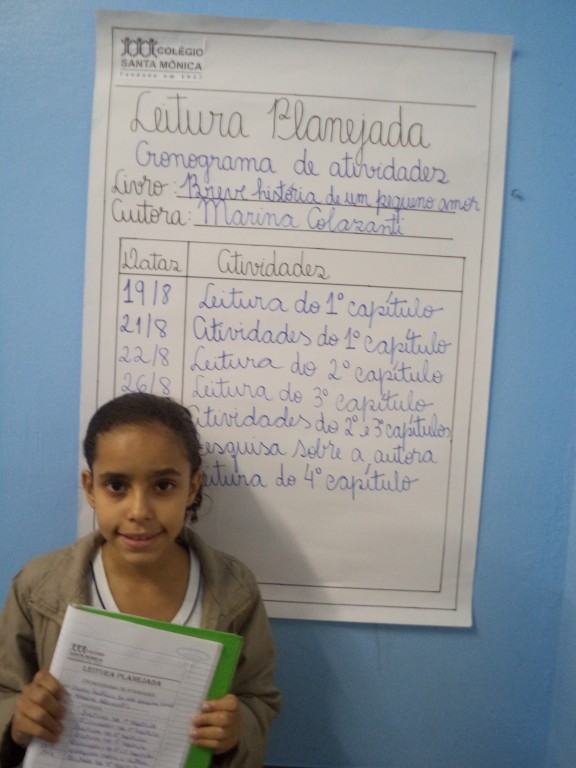 COLÉGIO
SANTA MÔNICA
Fundado em 1937
Leitura Planejada
Cronograma de atividades
Livro: Breve história de um pequeno amor
Autora: Marina Colasanti
Datas Atividades
19/8 Leitura do 1º capítulo
21/8 Atividades do 1º capítulo
22/8 Leitura do 2º capítulo
26/8 Leitura do 3º capítulo
Atividades do 2º e 3º capítulos
esquisa sobre a autora
eitura do 4º capítulo
SANTA MÔNICA
LEITURA PLANEJADA